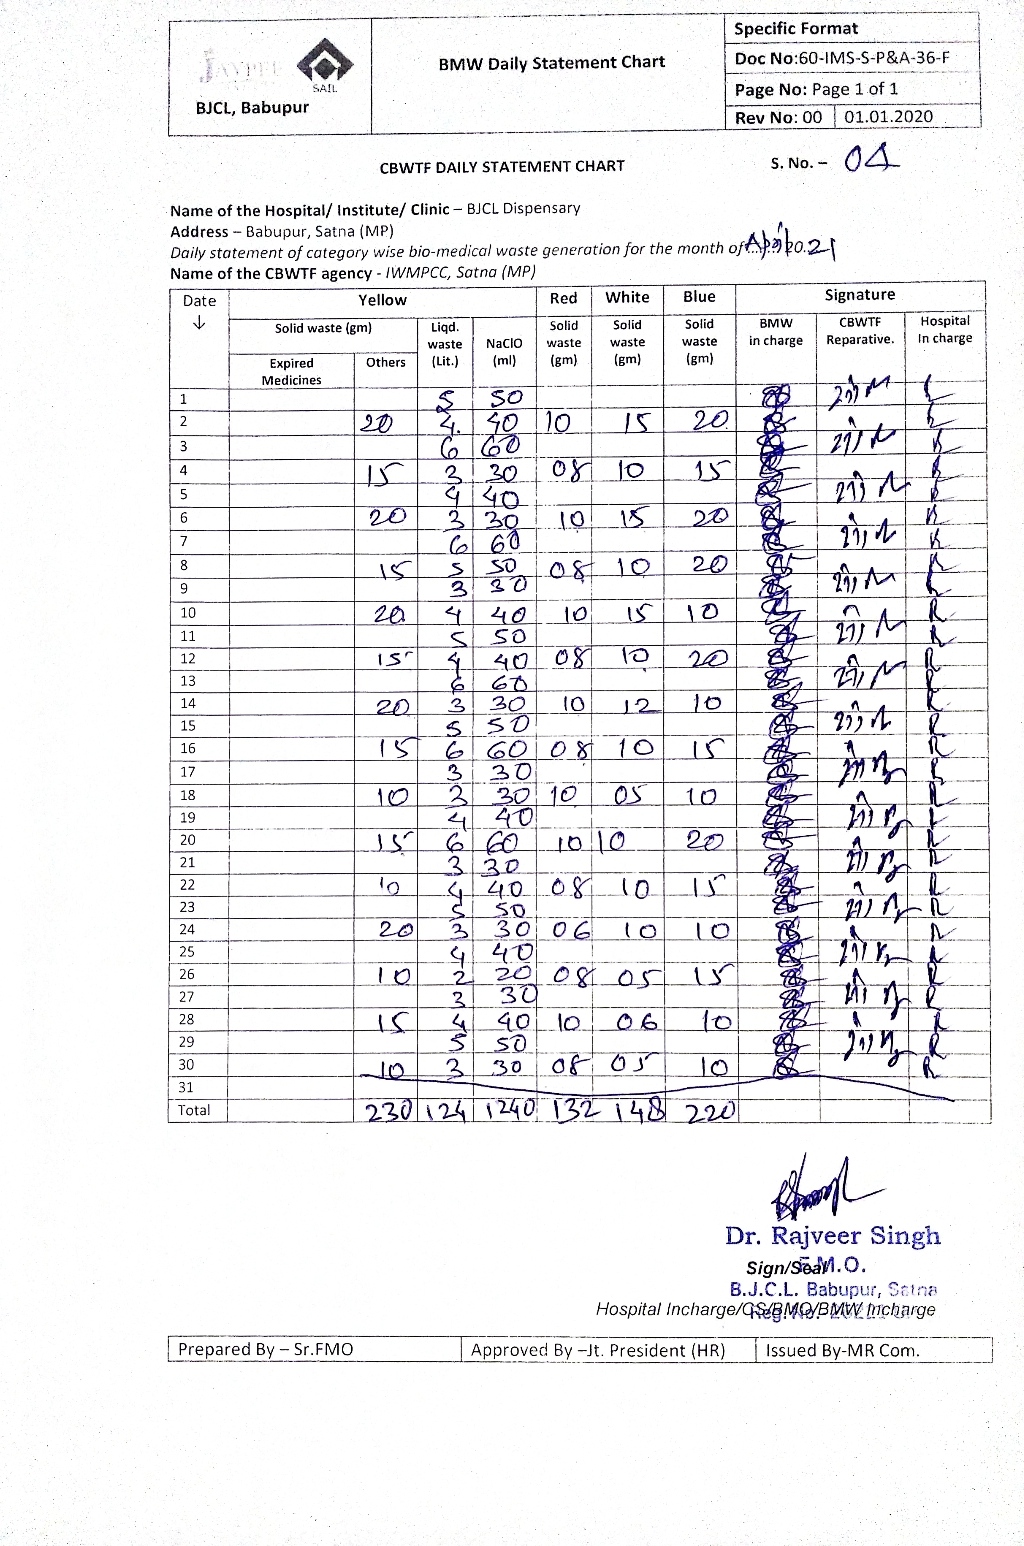 JAYPEE
SAIL
BJCL, Babupur
BMW Daily Statement Chart
Specific Format
Doc No:60-IMS-S-P&A-36-F
Page No: Page 1 of 1
Rev No: 00 01.01.2020
CBWTF DAILY STATEMENT CHART S. No. – 04
Name of the Hospital/ Institute/ Clinic – BJCL Dispensary
Address – Babupur, Satna (MP)
Daily statement of category wise bio-medical waste generation for the month of April 20.21
Name of the CBWTF agency - IWMPCC, Satna (MP)
Date ↓ Yellow Red White Blue Signature
Solid waste (gm) Liqd. waste (Lit.) NaClO (ml) Solid waste (gm) Solid waste (gm) Solid waste (gm) BMW in charge CBWTF Reparative. Hospital In charge
Expired Medicines Others
1 5 50
2 20 4. 40 10 15 20
3 6 60
4 15 3 30 08 10 15
5 4 40
6 20 3 30 10 15 20
7 6 60
8 15 5 50 08 10 20
9 3 30
10 20 4 40 10 15 10
11 5 50
12 15 4 40 08 10 20
13 6 60
14 20 3 30 10 12 10
15 5 50
16 15 6 60 08 10 15
17 3 30
18 10 3 30 10 05 10
19 4 40
20 15 6 60 10 10 20
21 3 30
22 10 4 40 08 10 15
23 5 50
24 20 3 30 06 10 10
25 4 40
26 10 2 20 08 05 15
27 3 30
28 15 4 40 10 06 10
29 5 50
30 10 3 30 08 05 10
31
Total 230 124 1240 132 148 220
Dr. Rajveer Singh
Sign/Seal F.M.O.
B.J.C.L. Babupur, Satna
Hospital Incharge/CS/BMO/BMW Incharge
Reg. No.
Prepared By – Sr.FMO Approved By –Jt. President (HR) Issued By-MR Com.